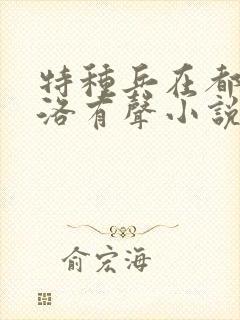 特種兵在都
洛有聲小說
俞宏海